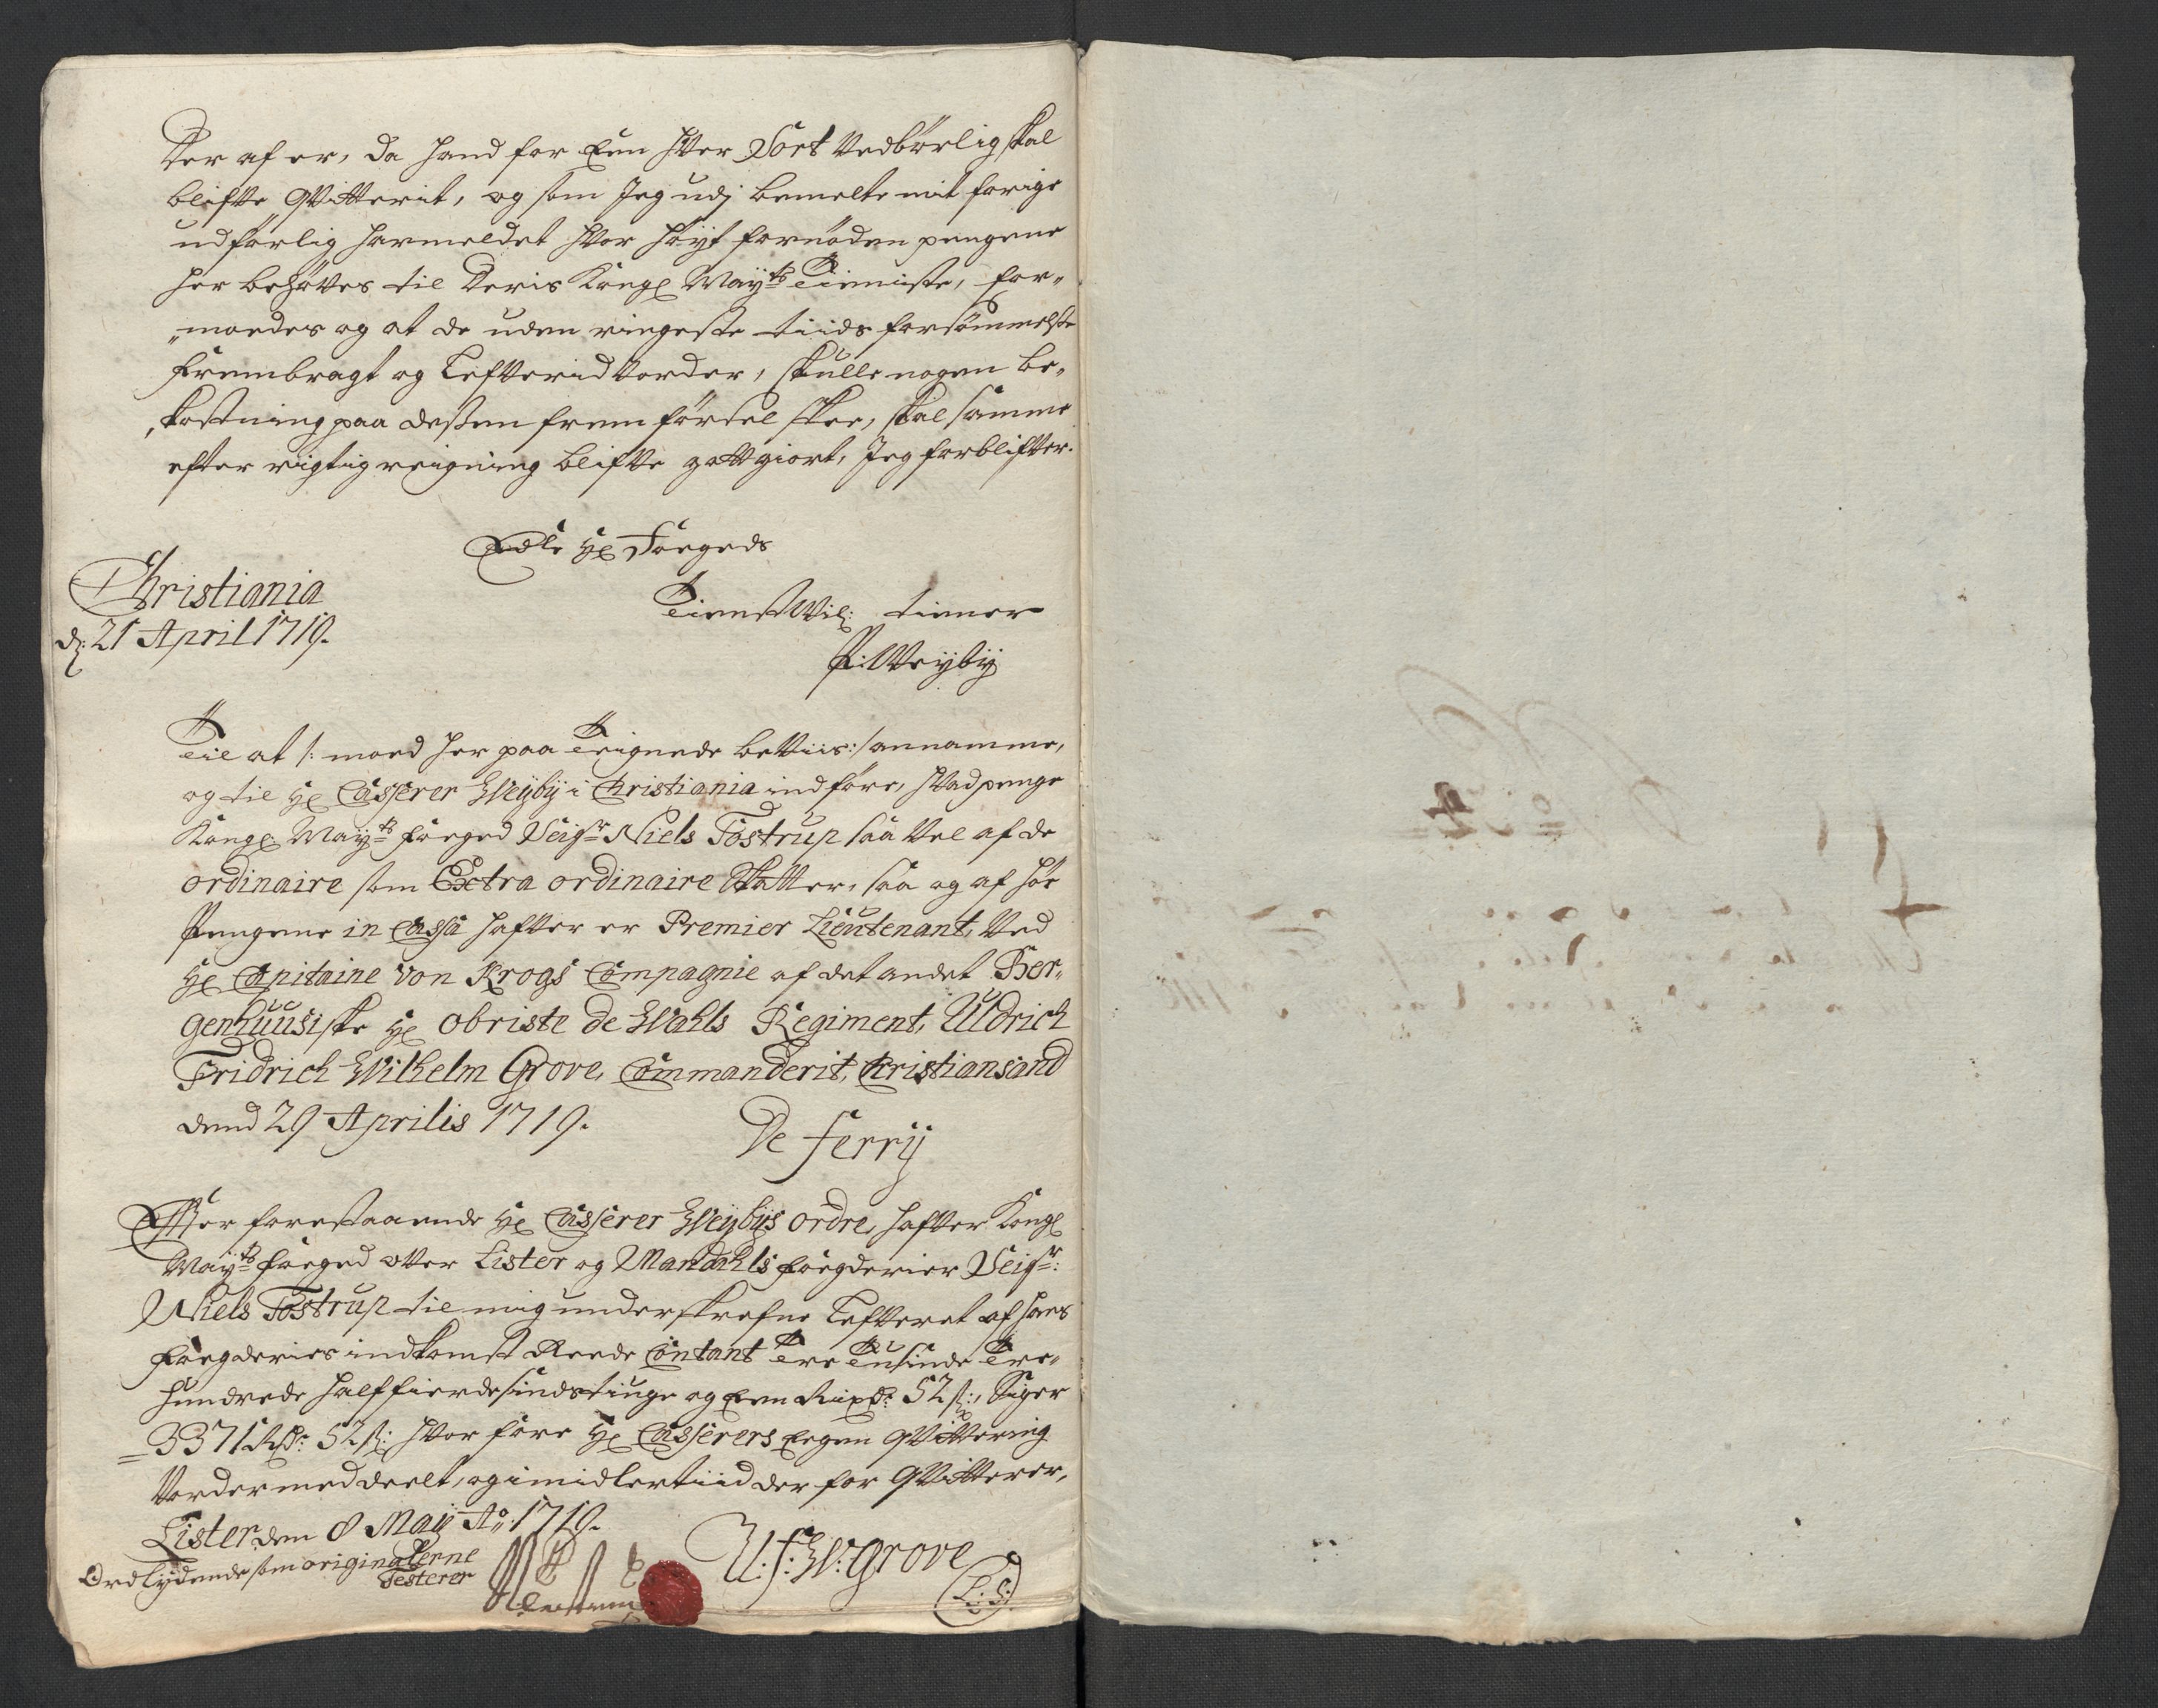 Der af er, da hand for Een hver Sort Vedbörlig skal
blifve qvitterit, og som Jeg udj bemelte mit forige
udförlig har meldet hvor höyt fornöden pengene
her behöves til Deris Kongl Mayts Tienniste, for„
„moedes og at de uden ringeste tiids forsömmelse
frembragt og lefverid vorder, skulle nogen be„
„kostning paa dessen fremförsel skee, skal samme
efter rigtig reigning blifve gottgiort, Jeg forblifver.
Edle Hr Fogeds
Christiania
d: 21 April 1719.
Tienstvil: tiener
P: Weyby
Til at /: moed her paa Teignede beviis :/ annamme,
og til Hr Casserer Weyby i Christiania indföre, hvad penge
Kongl Mayts foeged Seigr Niels Tostrup saa vel af de
ordinaire som Extra ordinaire Skatter, saa og af hös
Pengene in Cassa hafver er Premier Lieutenant, ved
Hr Capitaine von Krogs Compagnie af det andet Ber„
genhuusiske Hr Obriste de Wahls Regiment, Uldrich
Fridrich Wilhelm Grove, Commanderit, Christiansand
dend 29 Aprilis 1719.
De ferry
Efter forestaaende Hr Casserer Weybys ordre, hafver Kongl
Mayts foeged over Lister og Mandahls foegderier Seigr:
Niels Tostrup til mig underskrefne lefveret af hans
foegderies indkomst Reede Contant Tre Tusinde Tre„
hundrede halffierdesindstiuge og Een Rixdr 52 s:, Siger
3371 Rdr: 52 s: hvor fore Hr Casserers Egen qvittering
vorder meddeelt, og imidlertiid der for qvitterer,
Lister den 8 May Ao 1719.
U: f: W: Grove
(L: S:)
Ordlydende som originalerne
Testerer